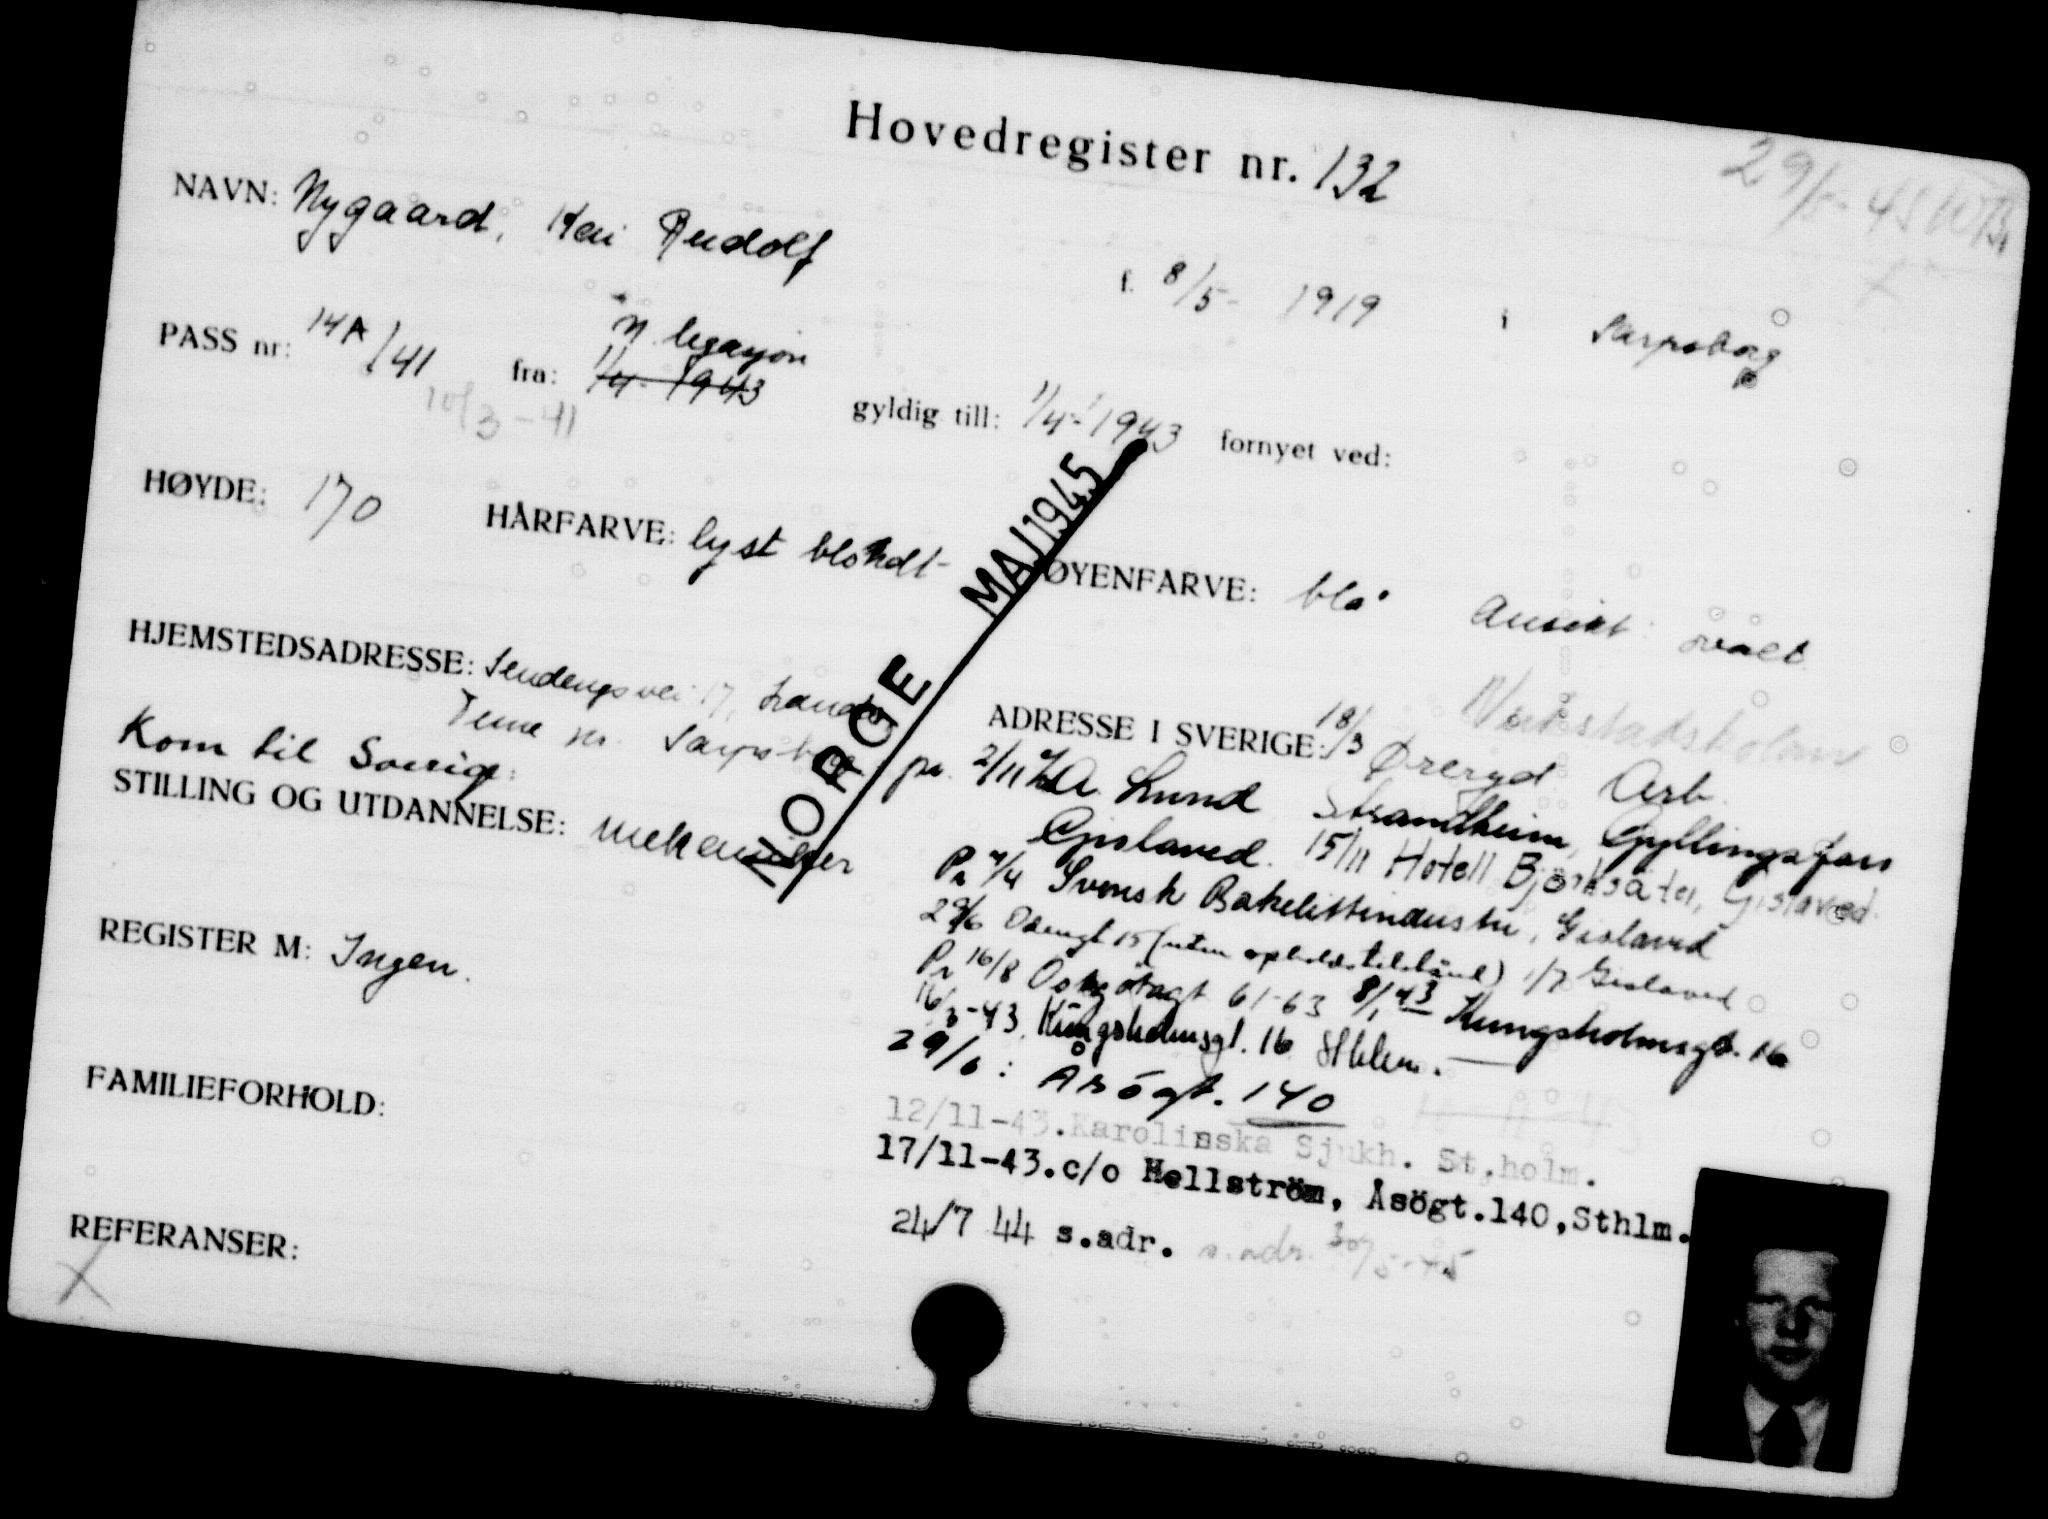 Hovedregister nr. 132
29/5-45
NAVN: Nygaard, Kai Rudolf
f. 8/5- 1919 i Sarpsborg
PASS nr: 14A/41 fra: N. legasjon
1/4- 1943
10/3-41
gyldig till: 1/4-1943 fornyet ved:
HØYDE: 170 HÅRFARVE: lyst blondt ØYENFARVE: blå Ansikt: ovalt
NORGE MAJ 1945
HJEMSTEDSADRESSE: 17,
Tune pr. Sarpsborg
Kom til Sverige:
STILLING OG UTDANNELSE: mekaniker
REGISTER M: Ingen.
FAMILIEFORHOLD:
REFERANSER:
X
ADRESSE I SVERIGE: 18/3 Øreryd Arb.
pr. 2/11 c/o A. Lund Strandheim, Gyllingsfors
Gislaved. 15/11 Hotell Björksäter, Gislaved.
Pr 4/4 Svensk Bakelittindustri, Gislaved
29/6 Odengt 15 (uten opholdstilstånd) 1/7 Gislaved
Pr 16/8 Östgötagt 61-63 8/1 43 Kungsholmsgt. 16
16/3-43. Kungsholmsgt. 16 Sthlm.
29/6: Åsögt. 140
12/11-43. Karolinska Sjukh. St,holm.
17/11-43. c/o Hellström, Åsögt. 140, Sthlm.
24/7 44 s.adr. s.adr.